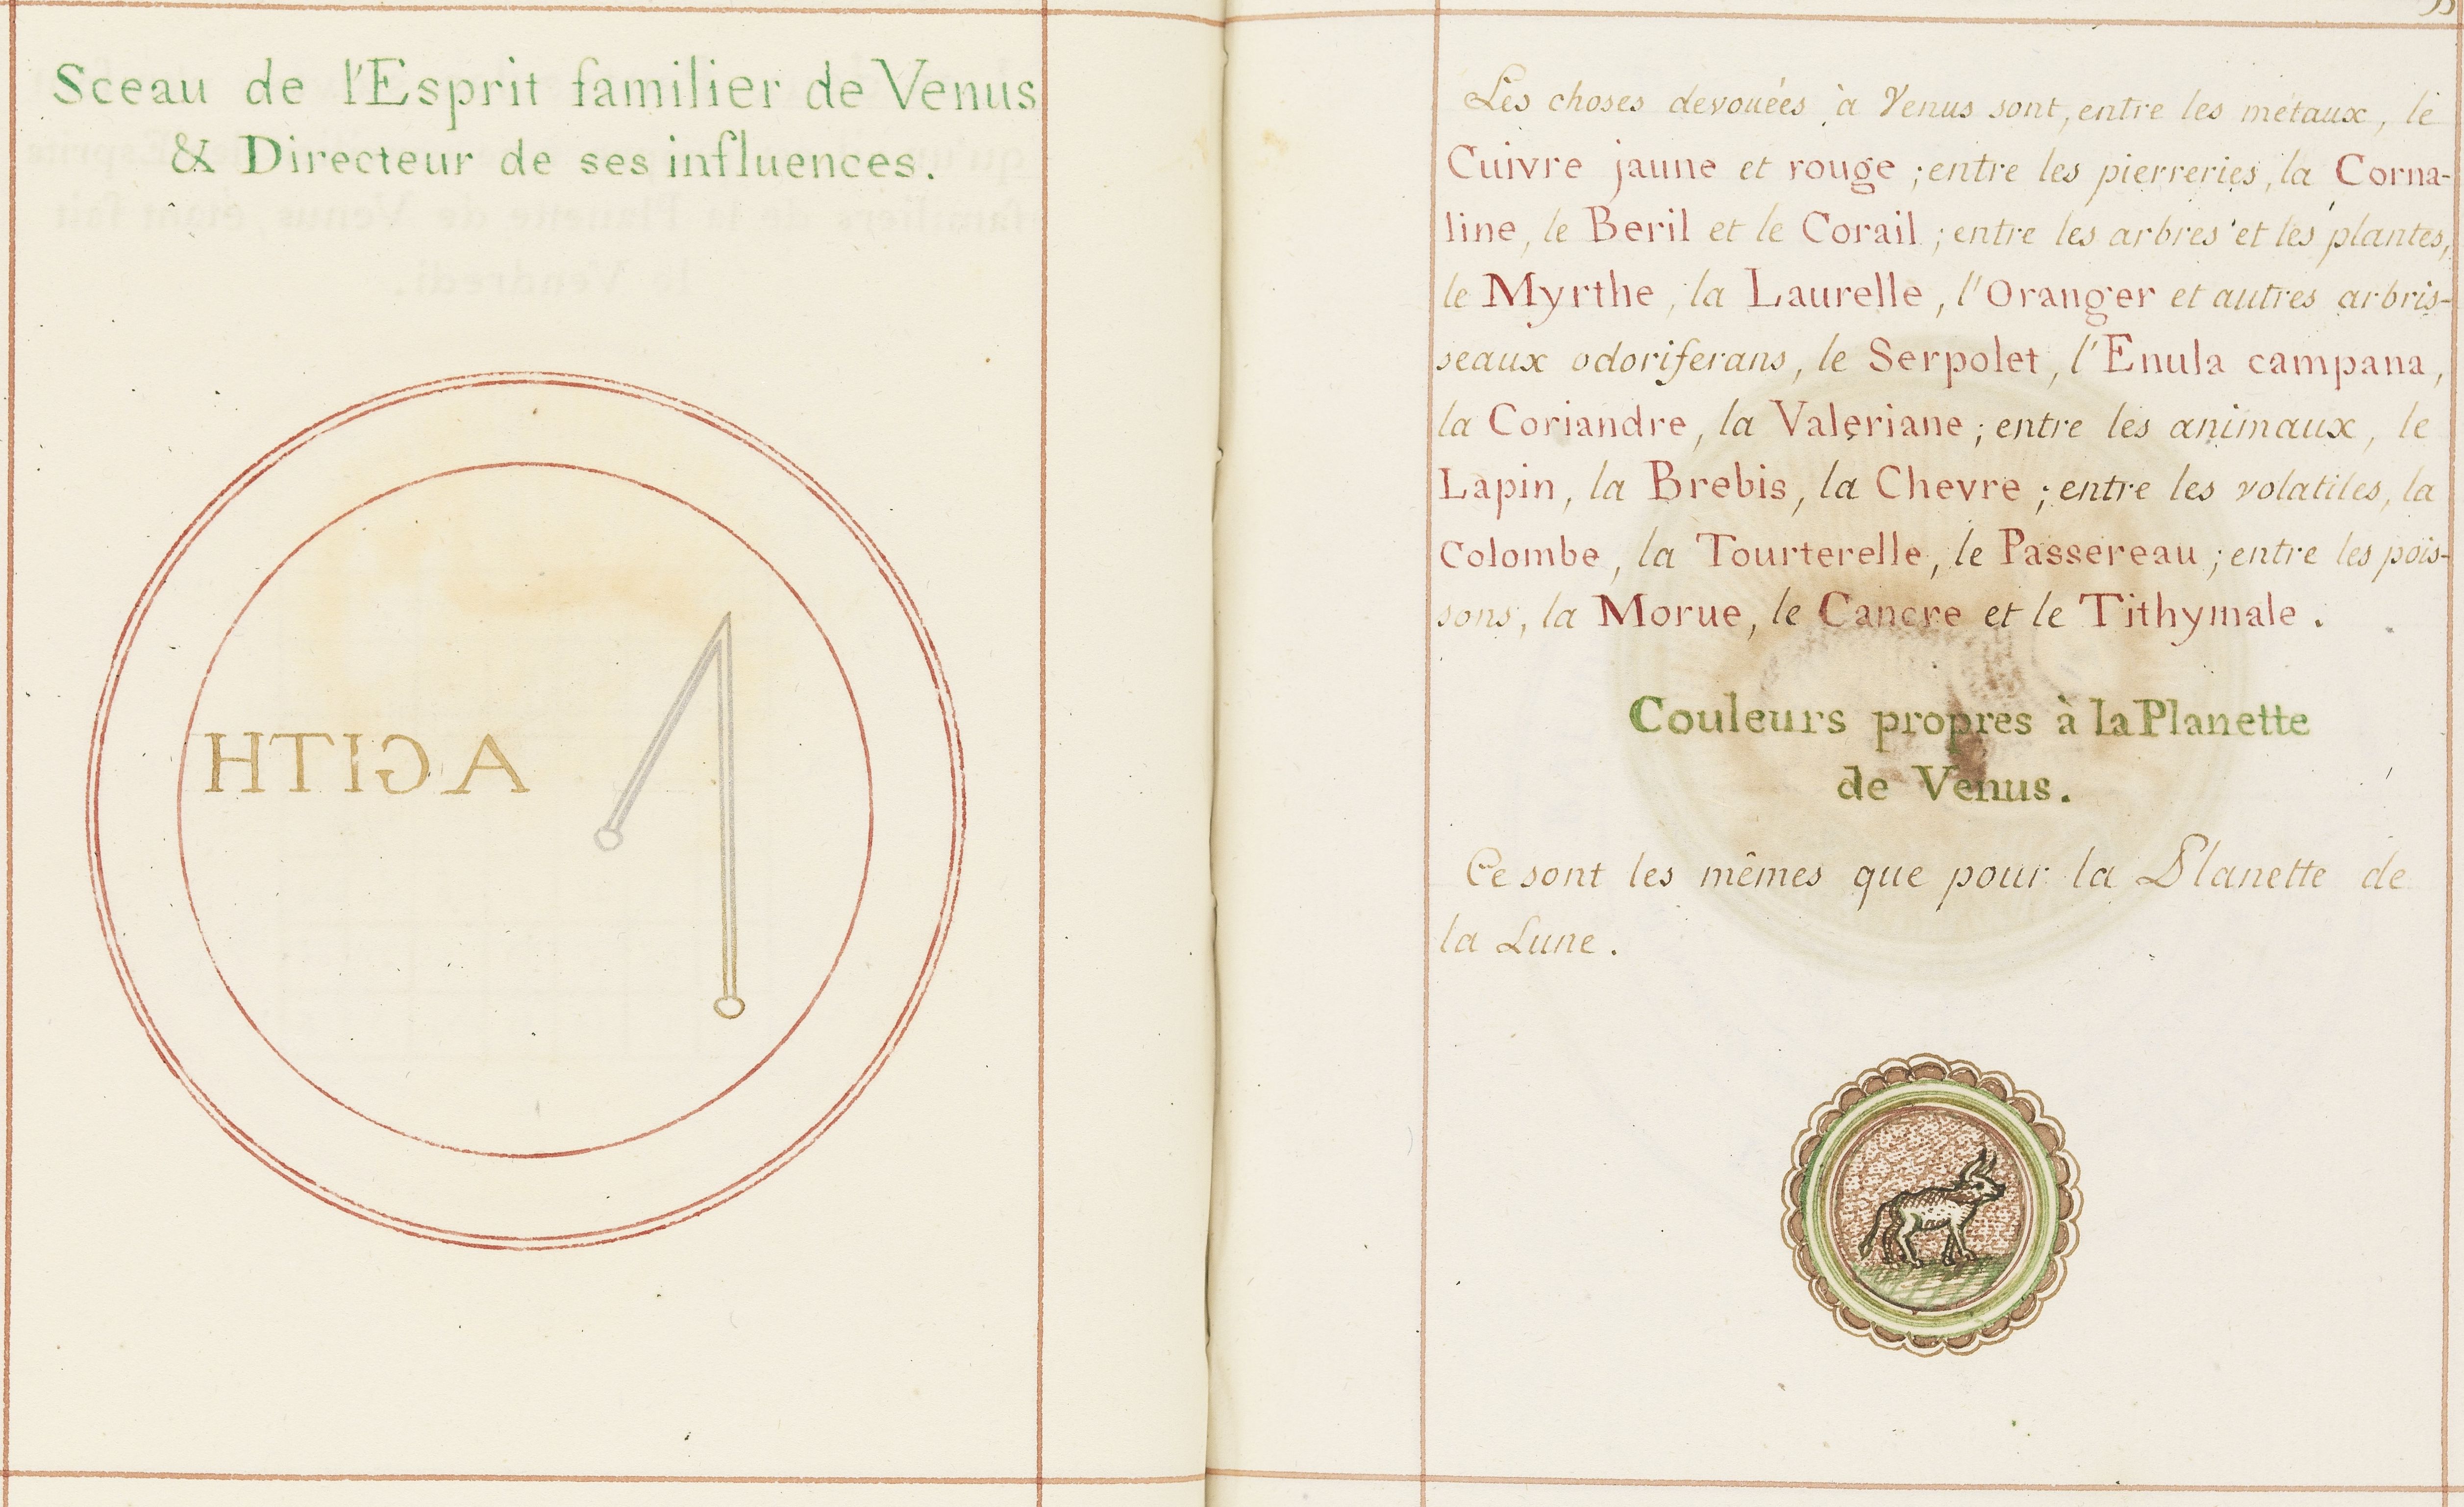 Sceau de l'Esprit familier de Venus
& Directeur de ses influences.
AGITH
Les choses devouées à Venus sont, entre les métaux, le
Cuivre jaune et rouge ; entre les pierreries, la Corna-
line, le Beril et le Corail ; entre les arbres et les plantes,
le Myrthe, la Laurelle, l'Oranger et autres arbris-
seaux odoriferans, le Serpolet, l'Enula campana,
la Coriandre, la Valeriane ; entre les animaux, le
Lapin, la Brebis, la Chevre ; entre les volatiles, la
Colombe, la Tourterelle, le Passereau ; entre les pois-
sons, la Morue, le Cancre et le Tithymale.
Couleurs propres à la Planette
de Venus.
Ce sont les mêmes que pour la Planette de
la Lune.